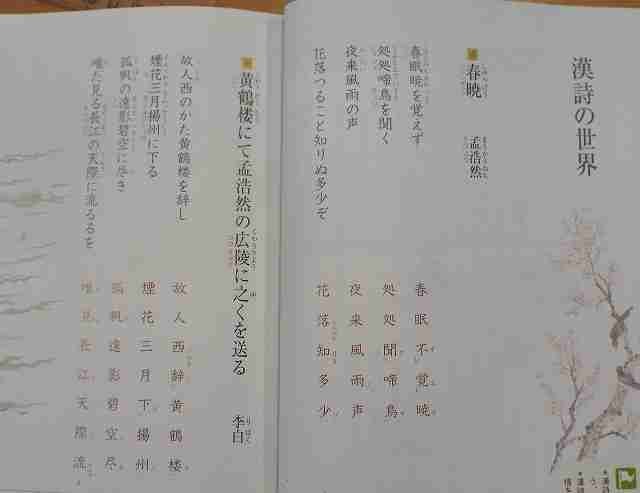 漢詩の世界
春暁
孟浩然
春眠暁を覚えず
処処啼鳥を聞く
夜来風雨の声
花落つること知りぬ多少ぞ
春眠不覚暁
処処聞啼鳥
夜来風雨声
花落知多少
黄鶴楼にて孟浩然の広陵に之くを送る
李白
故人西のかた黄鶴楼を辞し
煙花三月揚州に下る
孤帆の遠影碧空に尽き
唯だ見る長江の天際に流るるを
故人西辞黄鶴楼
煙花三月下揚州
孤帆遠影碧空尽
唯見長江天際流